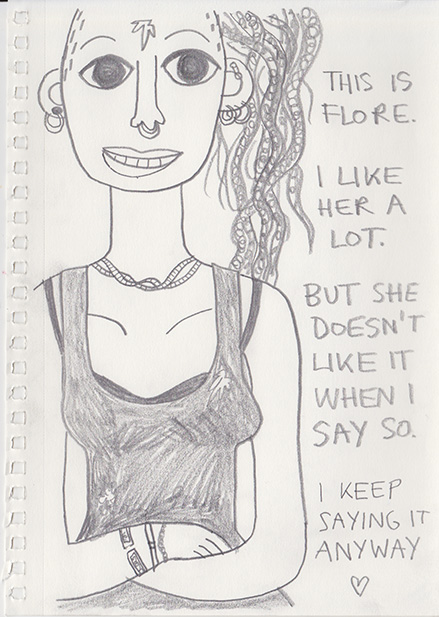 THIS IS
FLORE.
I LIKE
HER A
LOT.
BUT SHE
DOESN'T
LIKE IT
WHEN I
SAY SO.
I KEEP
SAYING IT
ANYWAY
♡